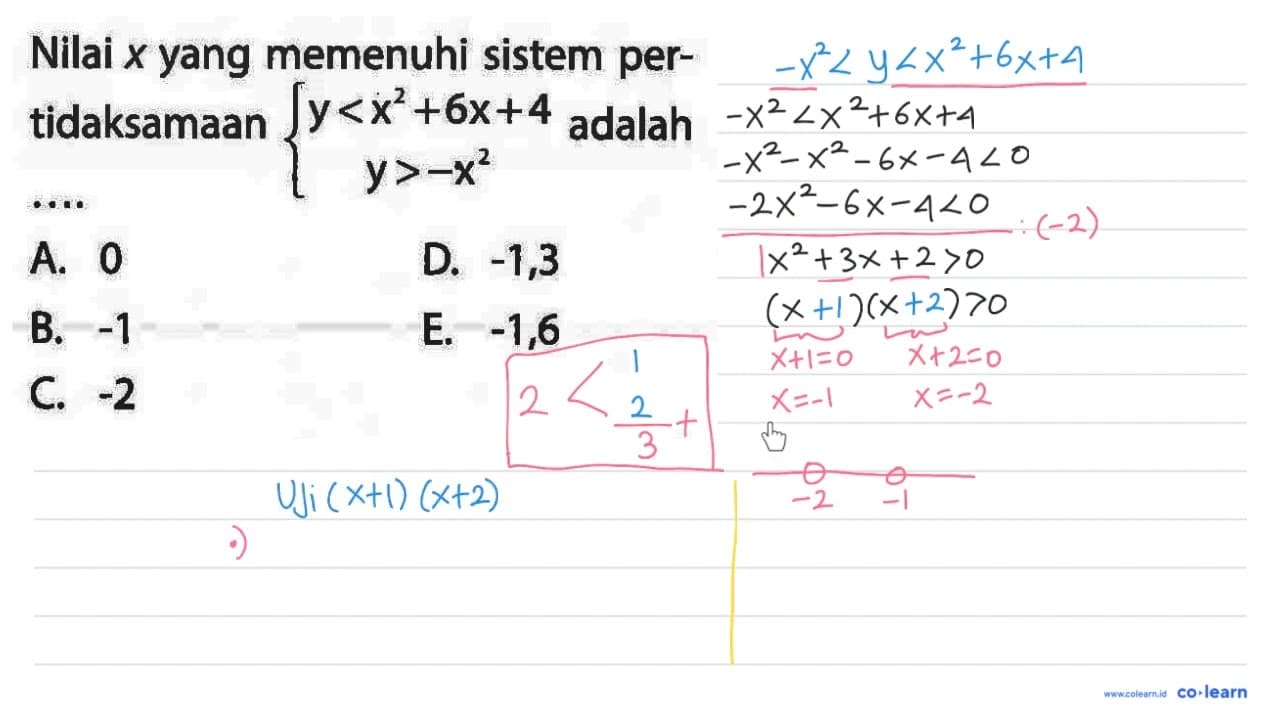 Nilai x yang memenuhi sistem per-
tidaksamaan { y < x² + 6x + 4 adalah
y > -x²
....
A. 0
B. -1
C. -2
D. -1,3
E. -1,6
-x² < y < x² + 6x + 4
-x² < x² + 6x + 4
-x² - x² - 6x - 4 < 0
-2x² - 6x - 4 < 0
: (-2)
1x² + 3x + 2 > 0
(x + 1)(x + 2) > 0
x + 1 = 0 x + 2 = 0
x = -1 x = -2
2 < 1
2 +
3
-2 -1
Uji (x+1) (x+2)
•)
www.colearn.id co·learn